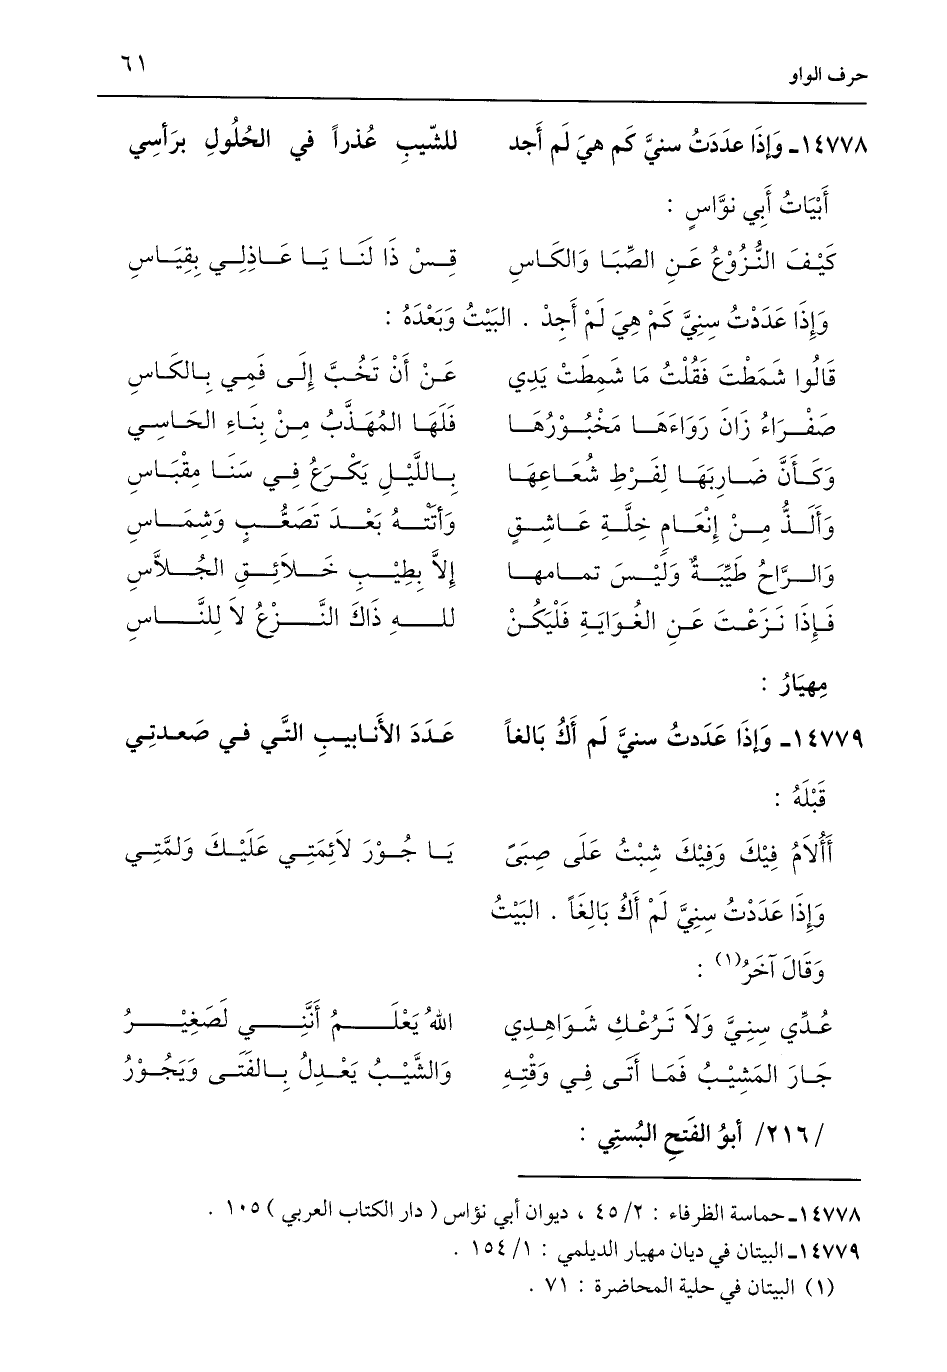 حرف الواو ٦١
١٤٧٧٨ـ وَإِذَا عدَدَتُ سنيَّ كَم هيَ لَم أَجد للشّيبِ عُذراً في الحُلُولِ برَأسِي
أَبْيَاتُ أَبِي نوَّاسٍ :
كَيْفَ النُّزُوْعُ عَنِ الصِّبَا وَالكَاسِ قِسْ ذَا لَنَا يَا عَاذِلِي بِقِيَاسِ
وَإِذَا عَدَدْتُ سِنِيَّ كَمْ هِيَ لَمْ أَجِدْ . البَيْتُ وَبَعْدَهُ :
قَالُوا شَمَطْتَ فَقُلْتُ مَا شَمِطَتْ يَدِي عَنْ أَنْ تَخُبَّ إِلَى فَمِي بِالكَاسِ
صَفْرَاءُ زَانَ رَوَاءَهَا مَخْبُوْرُهَا فَلَهَا المُهَذَّبُ مِنْ بِنَاءِ الحَاسِي
وَكَأَنَّ ضَارِبَهَا لِفَرْطِ شُعَاعِهَا بِاللَّيْلِ يَكْرَعُ فِي سَنَا مِقْبَاسِ
وَأَلَذُّ مِنْ إِنْعَامِ خِلَّةِ عَاشِقٍ وَأَتَتْهُ بَعْدَ تَصَعُّبٍ وَشِمَاسِ
وَالرَّاحُ طَيِّبَةٌ وَلَيْسَ تمامها إِلاَّ بِطِيْبِ خَلاَئِقِ الجُلاَّسِ
فَإِذَا نَزَعْتَ عَنِ الغُوَايَةِ فَلْيَكُنْ للهِ ذَاكَ النَّزْعُ لاَ لِلنَّاسِ
مِهيَارُ :
١٤٧٧٩ـ وَإِذَا عَدَدتُ سنيَّ لَم أَكُ بَالغاً عَدَدَ الأَنابيبِ التَّي في صَعدتِي
قَبْلَهُ :
أَأُلاَمُ فِيْكَ وَفِيْكَ شِبْتُ عَلَى صِبَىً يَا جُوْرَ لاَئِمَتِي عَلَيْكَ وَلمَّتِي
وَإِذَا عَدَدْتُ سِنِيَّ لَمْ أَكُ بَالِغَاً . البَيْتُ
وَقَالَ آخَرُ(١) :
عُدِّي سِنِيَّ وَلاَ تَرُعْكِ شَوَاهِدِي اللهُ يَعْلَمُ أَنَّنِي لَصَغِيْرُ
جَارَ المَشِيْبُ فَمَا أَتَى فِي وَقْتِهِ وَالشَّيْبُ يَعْدِلُ بِالفَتَى وَيَجُوْرُ
/٢١٦/ أَبُو الفَتحِ البُستِي :
١٤٧٧٨ـ حماسة الظرفاء : ٢/ ٤٥ ، ديوان أبي نؤاس ( دار الكتاب العربي ) ١٠٥ .
١٤٧٧٩ـ البيتان في ديان مهيار الديلمي : ١/ ١٥٤ .
(١) البيتان في حلية المحاضرة : ٧١ .